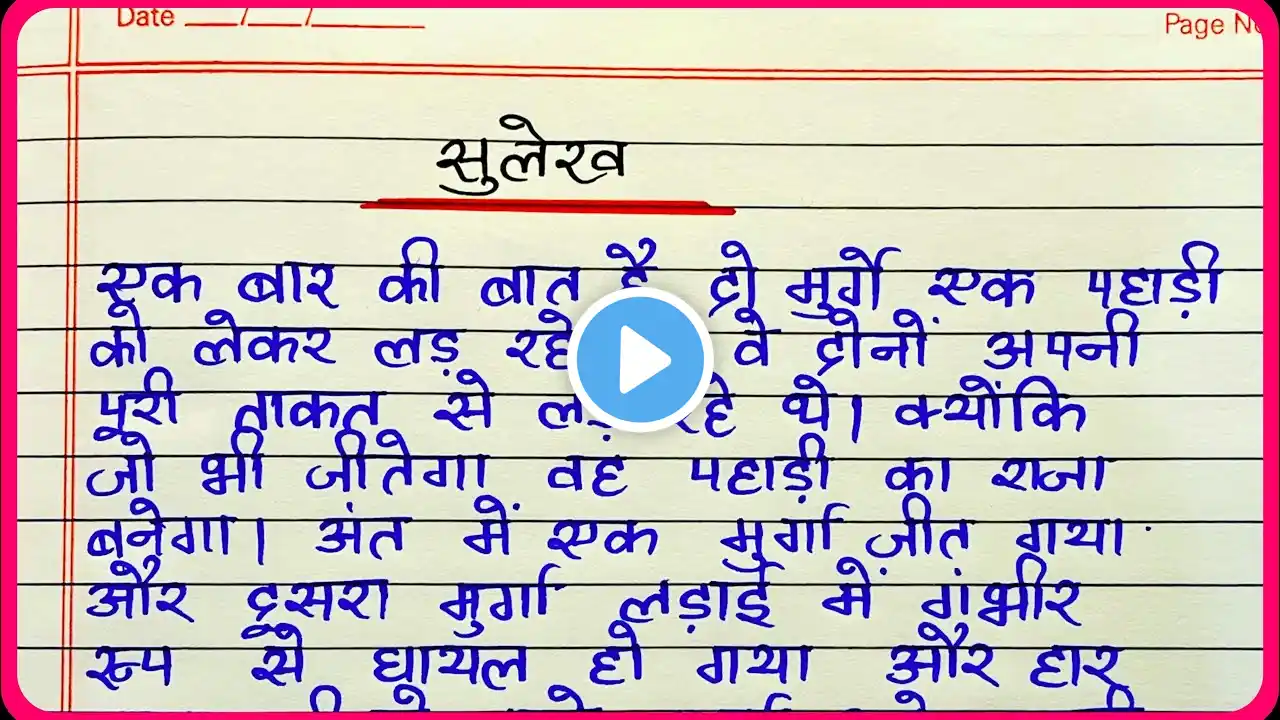 Date ___/___/______
Page No
सुलेख
एक बार की बात है दो मुर्गे एक पहाड़ी
को लेकर लड़ रहे वे दोनों अपनी
पूरी ताकत से लड़ रहे थे। क्योंकि
जो भी जीतेगा वह पहाड़ी का राजा
बनेगा। अंत में एक मुर्गा जीत गया
और दूसरा मुर्गा लड़ाई में गंभीर
रूप से घायल हो गया और हार